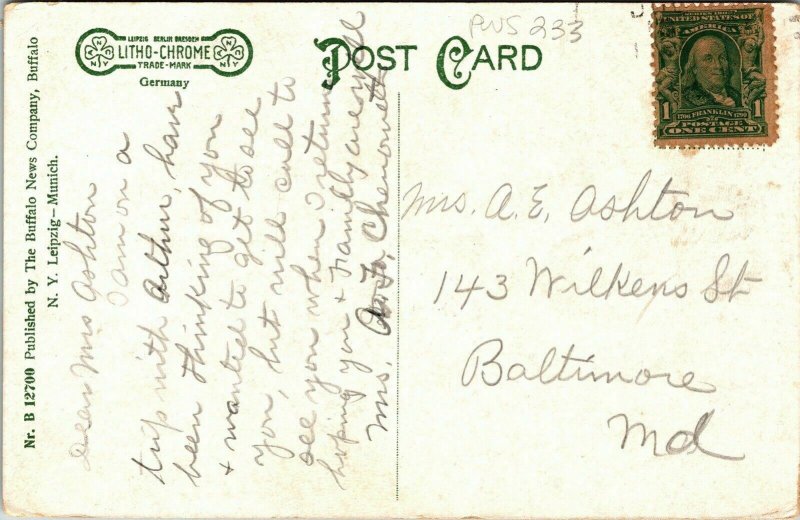 LEIPZIG BERLIN DRESDEN
LITHO-CHROME
TRADE-MARK
Germany
POST CARD
PWS 233
SERIES 1902
UNITED STATES OF
AMERICA
1 1
1706 FRANKLIN 1790
POSTAGE
ONE CENT
Nr. B 12700 Published by The Buffalo News Company, Buffalo
N. Y. Leipzig – Munich.
Dear Mrs Ashton
I am on a
trip with Arthur, have
been thinking of you
& wanted to get to see
you, but will call to
see you when I return
hoping you & family are well
Mrs. Chenowith
Mrs. A. E. Ashton
143 Wilkens St
Baltimore
Md